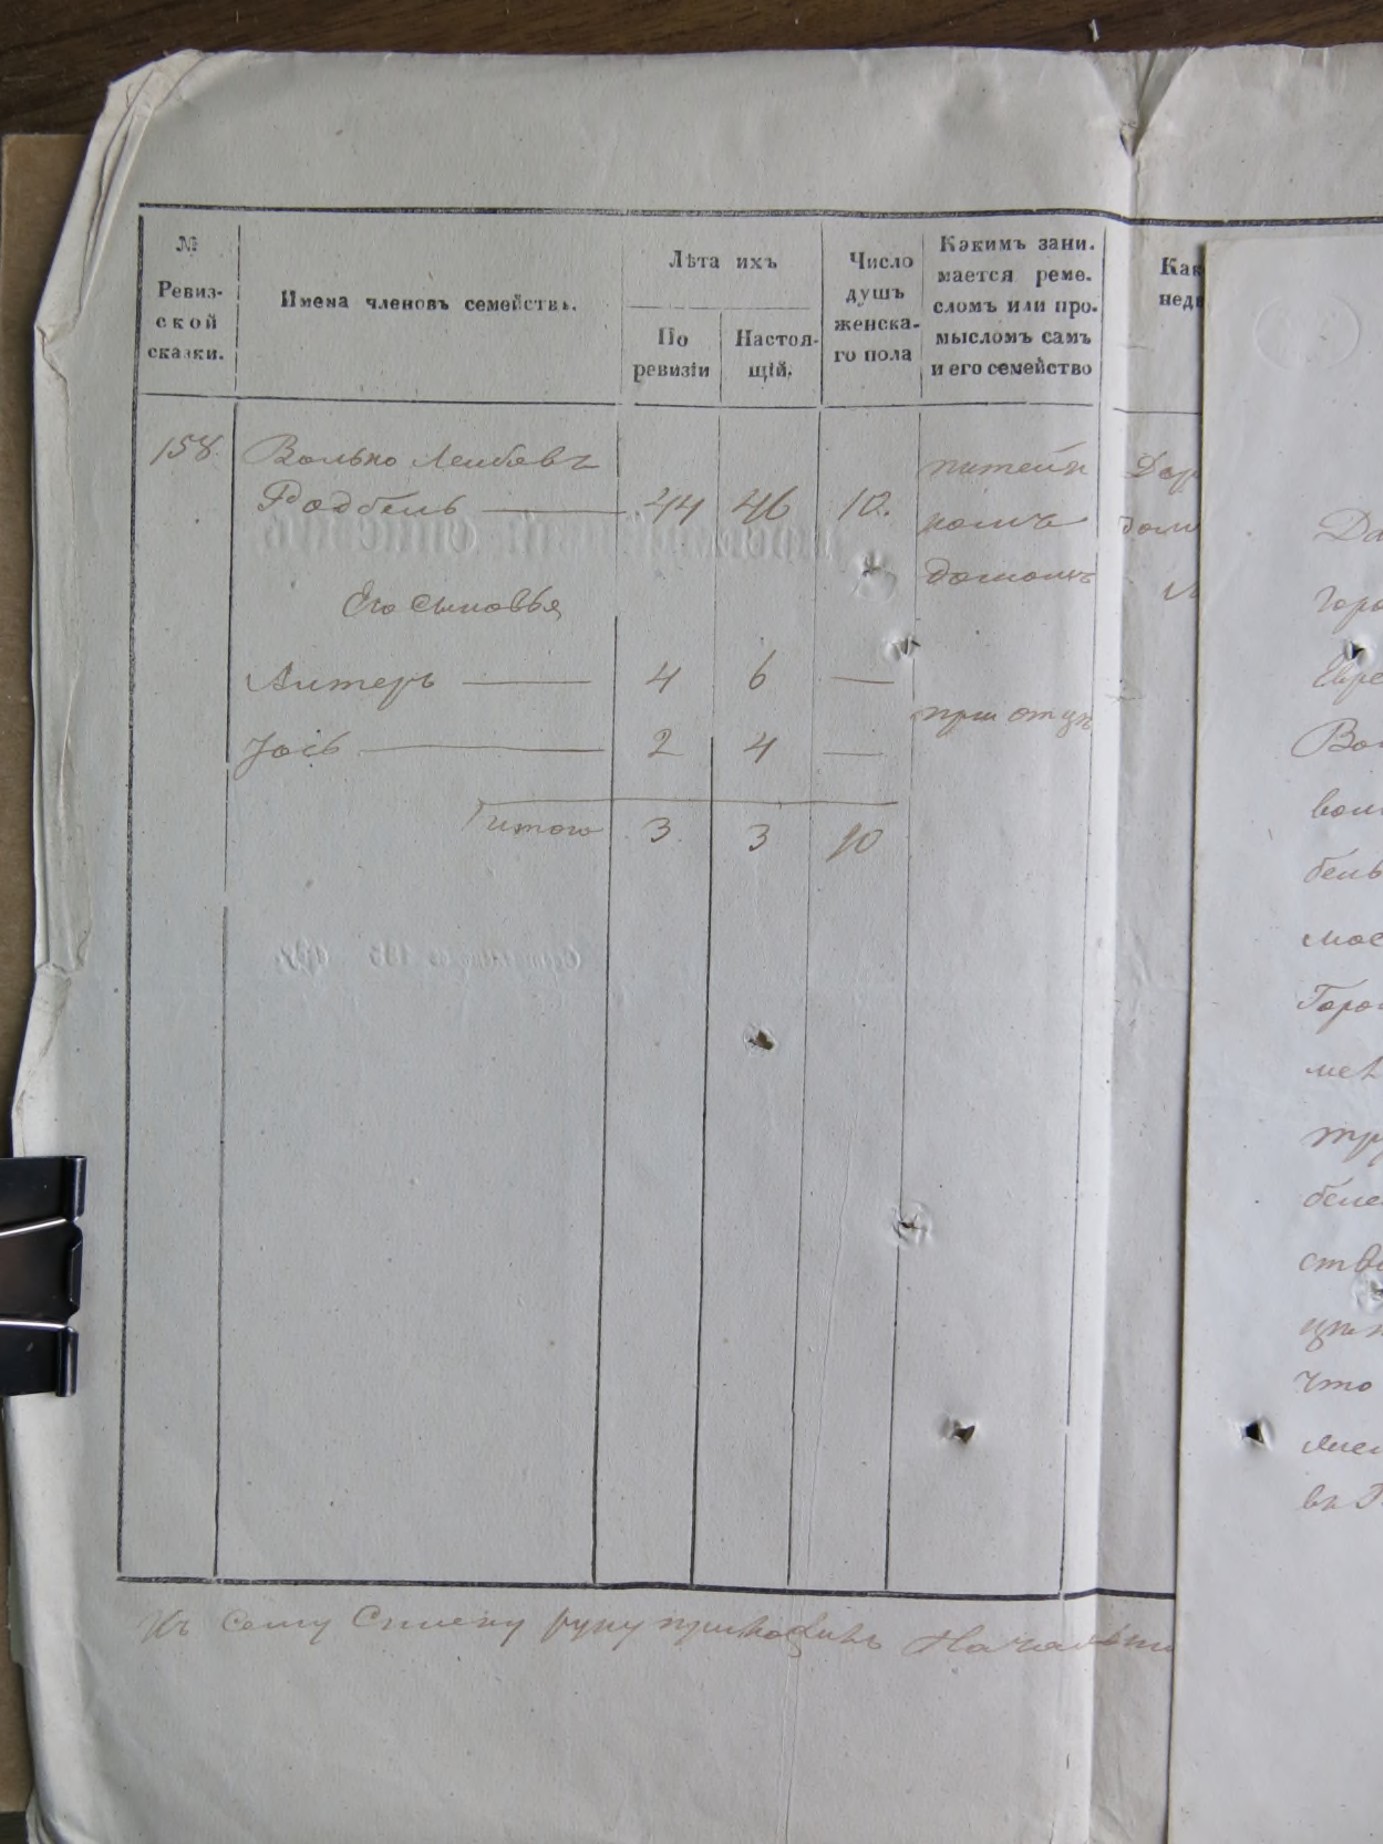 №
Ревиз-
ской
сказки.
Имена членовъ семействъ.
Лѣта ихъ
По
ревизіи
Настоя-
щій.
Число
душъ
женска-
го пола
Какимъ зани-
мается реме-
сломъ или про-
мысломъ самъ
и его семейство
Как
недв
158 Волько Лейбовъ
Родбель 44 46 10.
питейн
домомъ
Дор
дом
Его сыновья
Алтеръ 4 6 —
Іось 2 4 —
при отцѣ
итого 3 3 10
Къ сему списку руку приложилъ Начальни
Да
горо
Евре
Вол
вол
бель
мос
Горо
мет
тру
беле
ство
цѣн
что